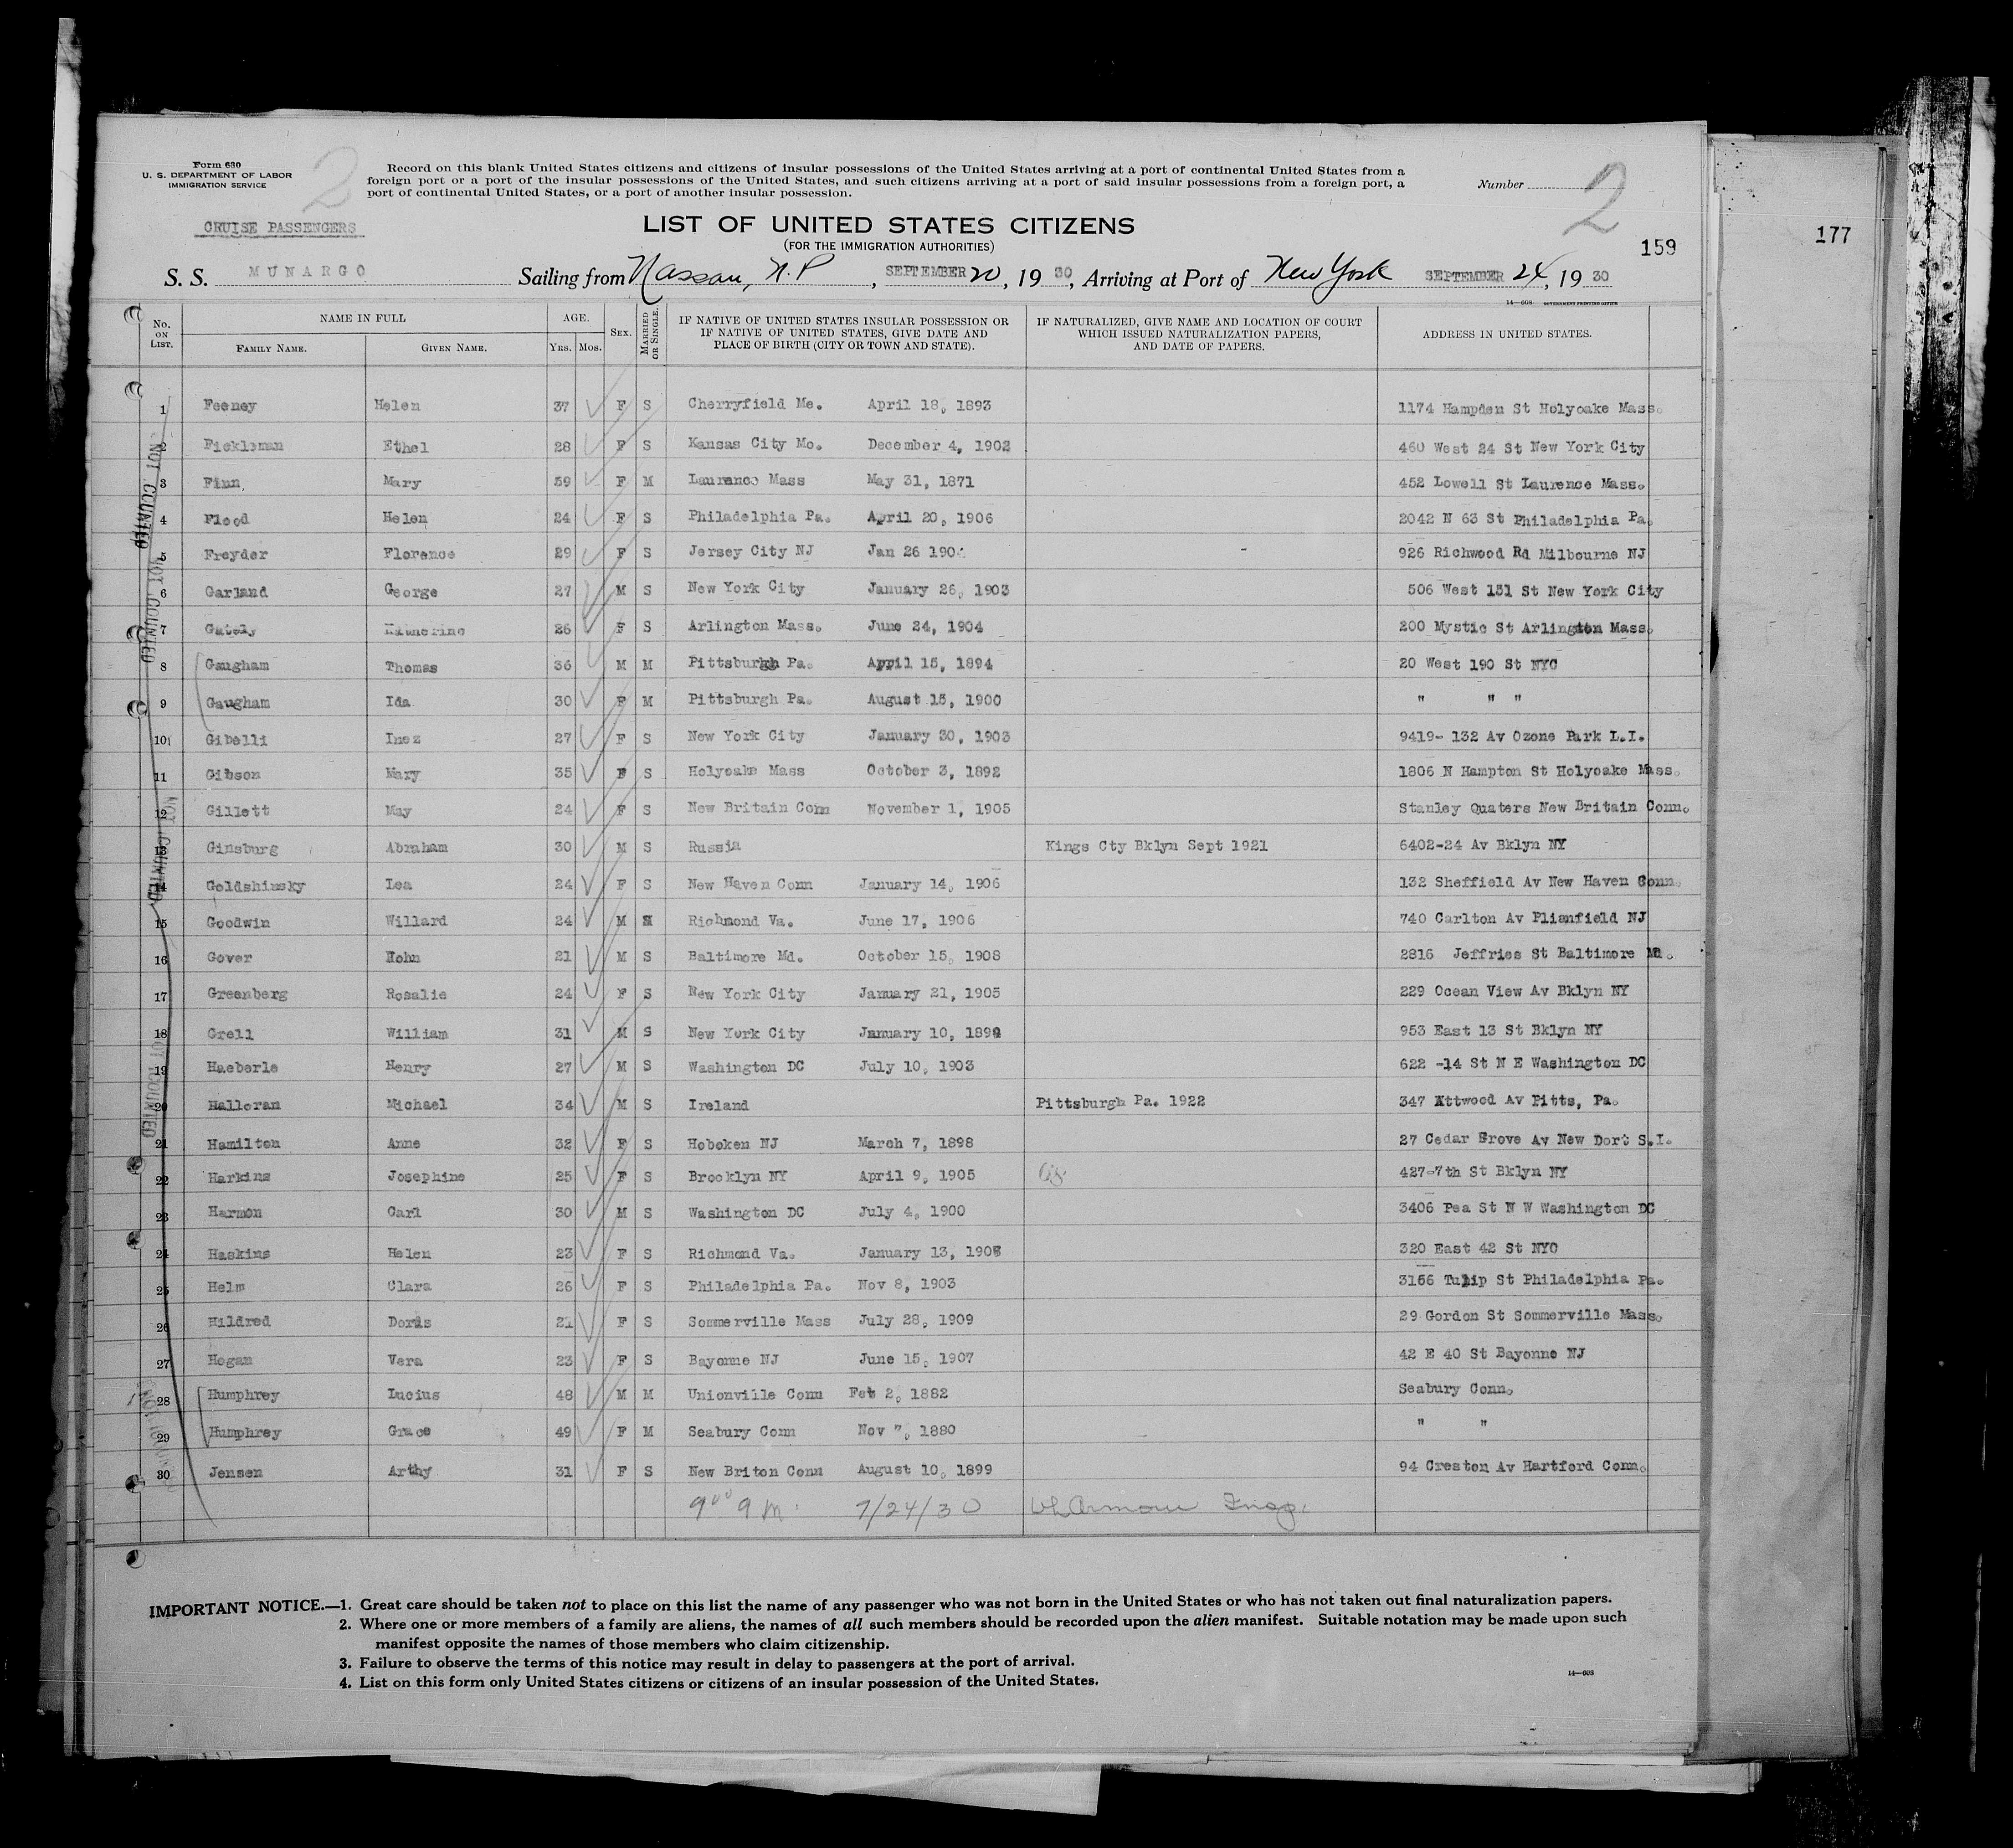 Form 630
U. S. DEPARTMENT OF LABOR
IMMIGRATION SERVICE
2
Record on this blank United States citizens and citizens of insular possessions of the United States arriving at a port of continental United States from a
foreign port or a port of the insular possessions of the United States, and such citizens arriving at a port of said insular possessions from a foreign port, a
port of continental United States, or a port of another insular possession.
Number
2
CRUISE PASSENGERS
LIST OF UNITED STATES CITIZENS
(FOR THE IMMIGRATION AUTHORITIES)
159
177
S. S. MUNARGO Sailing from Nassau, N.P, SEPTEMBER 20, 19 30, Arriving at Port of New York SEPTEMBER 24, 19 30
14—608 GOVERNMENT PRINTING OFFICE
No. ON LIST. NAME IN FULL FAMILY NAME. GIVEN NAME. AGE. YRS. MOS. SEX. MARRIED OR SINGLE. IF NATIVE OF UNITED STATES INSULAR POSSESSION OR IF NATIVE OF UNITED STATES, GIVE DATE AND PLACE OF BIRTH (CITY OR TOWN AND STATE). IF NATURALIZED, GIVE NAME AND LOCATION OF COURT WHICH ISSUED NATURALIZATION PAPERS, AND DATE OF PAPERS. ADDRESS IN UNITED STATES.
1 Feeney Helen 37 F S Cherryfield Me. April 18, 1893 1174 Hampden St Holyoake Mass.
2 Fickleman Ethel 28 F S Kansas City Mo. December 4, 1902 460 West 24 St New York City
3 Finn Mary 59 F M Laurence Mass May 31, 1871 452 Lowell St Laurence Mass.
4 Flood Helen 24 F S Philadelphia Pa. April 20, 1906 2042 N 63 St Philadelphia Pa.
5 Freyder Florence 29 F S Jersey City NJ Jan 26 926 Richwood Rd Milbourne NJ
6 Garland George 27 M S New York City January 26, 1903 506 West 151 St New York City
7 Gately Katherine 26 F S Arlington Mass. June 24, 1904 200 Mystic St Arlington Mass.
8 Gaugham Thomas 36 M M Pittsburgh Pa. April 15, 1894 20 West 190 St NYC
9 Gaugham Ida 30 F M Pittsburgh Pa. August 15, 1900 " " "
10 Gibelli Inez 27 F S New York City January 30, 1903 9419- 132 Av Ozone Park L.I.
11 Gibson Mary 35 F S Holyoake Mass October 3, 1892 1806 N Hampton St Holyoake Mass.
12 Gillett May 24 F S New Britain Conn November 1, 1905 Stanley Quaters New Britain Conn.
13 Ginsburg Abraham 30 M S Russia Kings Cty Bklyn Sept 1921 6402-24 Av Bklyn NY
14 Goldshinsky Lea 24 F S New Haven Conn January 14, 1906 132 Sheffield Av New Haven Conn.
15 Goodwin Willard 24 M Richmond Va. June 17, 1906 740 Carlton Av Plianfield NJ
16 Gover Hohn 21 M S Baltimore Md. October 15, 1908 2816 Jeffries St Baltimore Md.
17 Greenberg Rosalie 24 F S New York City January 21, 1905 229 Ocean View Av Bklyn NY
18 Grell William 31 M S New York City January 10, 1899 953 East 13 St Bklyn NY
19 Haeberle Henry 27 M S Washington DC July 10, 1903 622 -14 St N E Washington DC
20 Halloran Michael 34 M S Ireland Pittsburgh Pa. 1922 347 Attwood Av Pitts, Pa.
21 Hamilton Anne 32 F S Hoboken NJ March 7, 1898 27 Cedar Grove Av New Dort S.I.
22 Harkins Josephine 25 F S Brooklyn NY April 9, 1905 427-7th St Bklyn NY
23 Harmon Carl 30 M S Washington DC July 4, 1900 3406 Pea St N W Washington DC
24 Haskins Helen 23 F S Richmond Va. January 13, 320 East 42 St NYC
25 Helm Clara 26 F S Philadelphia Pa. Nov 8, 1903 3156 Tulip St Philadelphia Pa.
26 Hildred Doris 21 F S Sommerville Mass July 28, 1909 29 Gordon St Sommerville Mass.
27 Hogan Vera 23 F S Bayonne NJ June 15, 1907 42 E 40 St Bayonne NJ
28 Humphrey Lucius 48 M M Unionville Conn Feb 2, 1882 Seabury Conn.
29 Humphrey Grace 49 F M Seabury Conn Nov 7, 1880 " "
30 Jensen Arthy 31 F S New Briton Conn August 10, 1899 94 Creston Av Hartford Conn.
NOT COUNTED
NOT COUNTED
NOT COUNTED
NOT COUNTED
9/24/30 Insp.
IMPORTANT NOTICE.—1. Great care should be taken not to place on this list the name of any passenger who was not born in the United States or who has not taken out final naturalization papers.
2. Where one or more members of a family are aliens, the names of all such members should be recorded upon the alien manifest. Suitable notation may be made upon such
manifest opposite the names of those members who claim citizenship.
3. Failure to observe the terms of this notice may result in delay to passengers at the port of arrival.
4. List on this form only United States citizens or citizens of an insular possession of the United States.
14—608